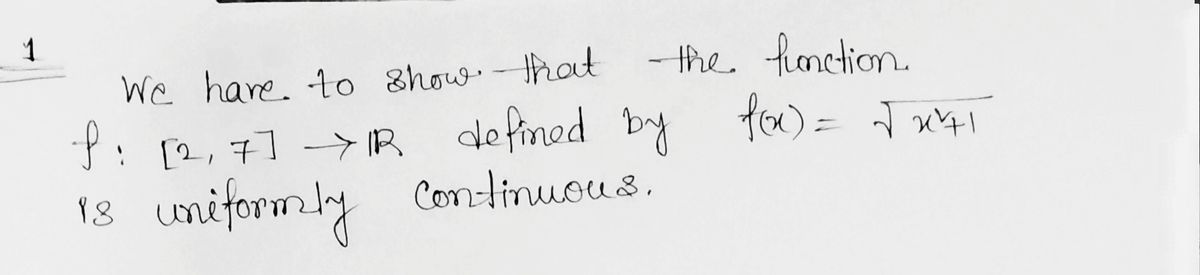 1
We have to show that the function
f: [2, 7] → ℝ defined by f(x) = √x²+1
is uniformly continuous.